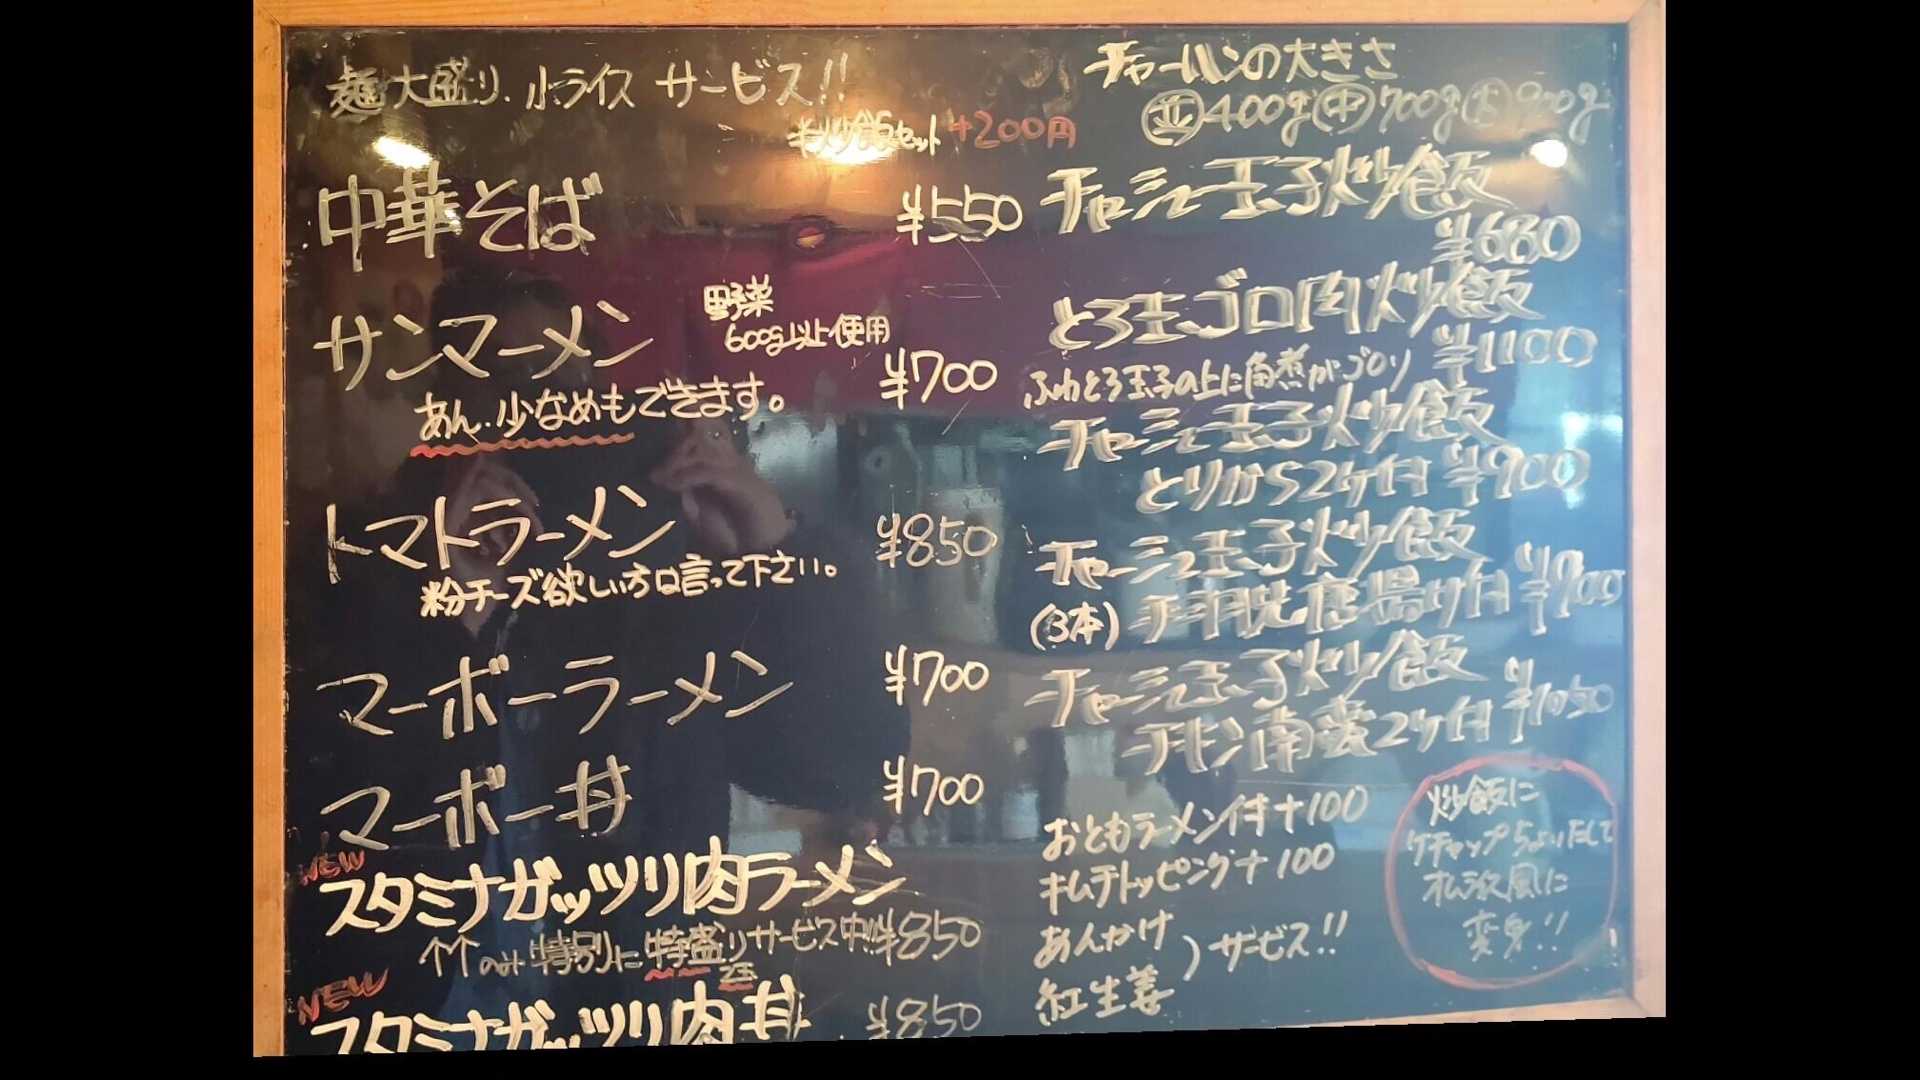 麺大盛り、小ライス サービス!!
半炒飯セット +200円
中華そば ¥550
サンマーメン 野菜
600g以上使用
¥700
あん、少なめもできます。
トマトラーメン ¥850
粉チーズ欲しい方は言って下さい。
マーボーラーメン ¥700
マーボー丼 ¥700
NEW
スタミナガッツリ肉ラーメン
↑↑のみ特別に特盛りサービス中!! ¥850
2玉
NEW
スタミナガッツリ肉丼 ¥850
チャーハンの大きさ
並400g 中700g 大900g
チャーシュー玉子炒飯
¥680
とろ玉ゴロ肉炒飯
¥1100
ふわとろ玉子の上に角煮がゴロリ
チャーシュー玉子炒飯
とりから2ケ付 ¥900
チャーシュー玉子炒飯
(3本) 手羽先唐揚げ付 ¥900
チャーシュー玉子炒飯
チキン南蛮2ケ付 ¥1050
おともラーメン付+100
キムチトッピング+100
あんかけ
紅生姜
)サービス!!
炒飯に
ケチャップちょい足して
オムライス風に
変身!!